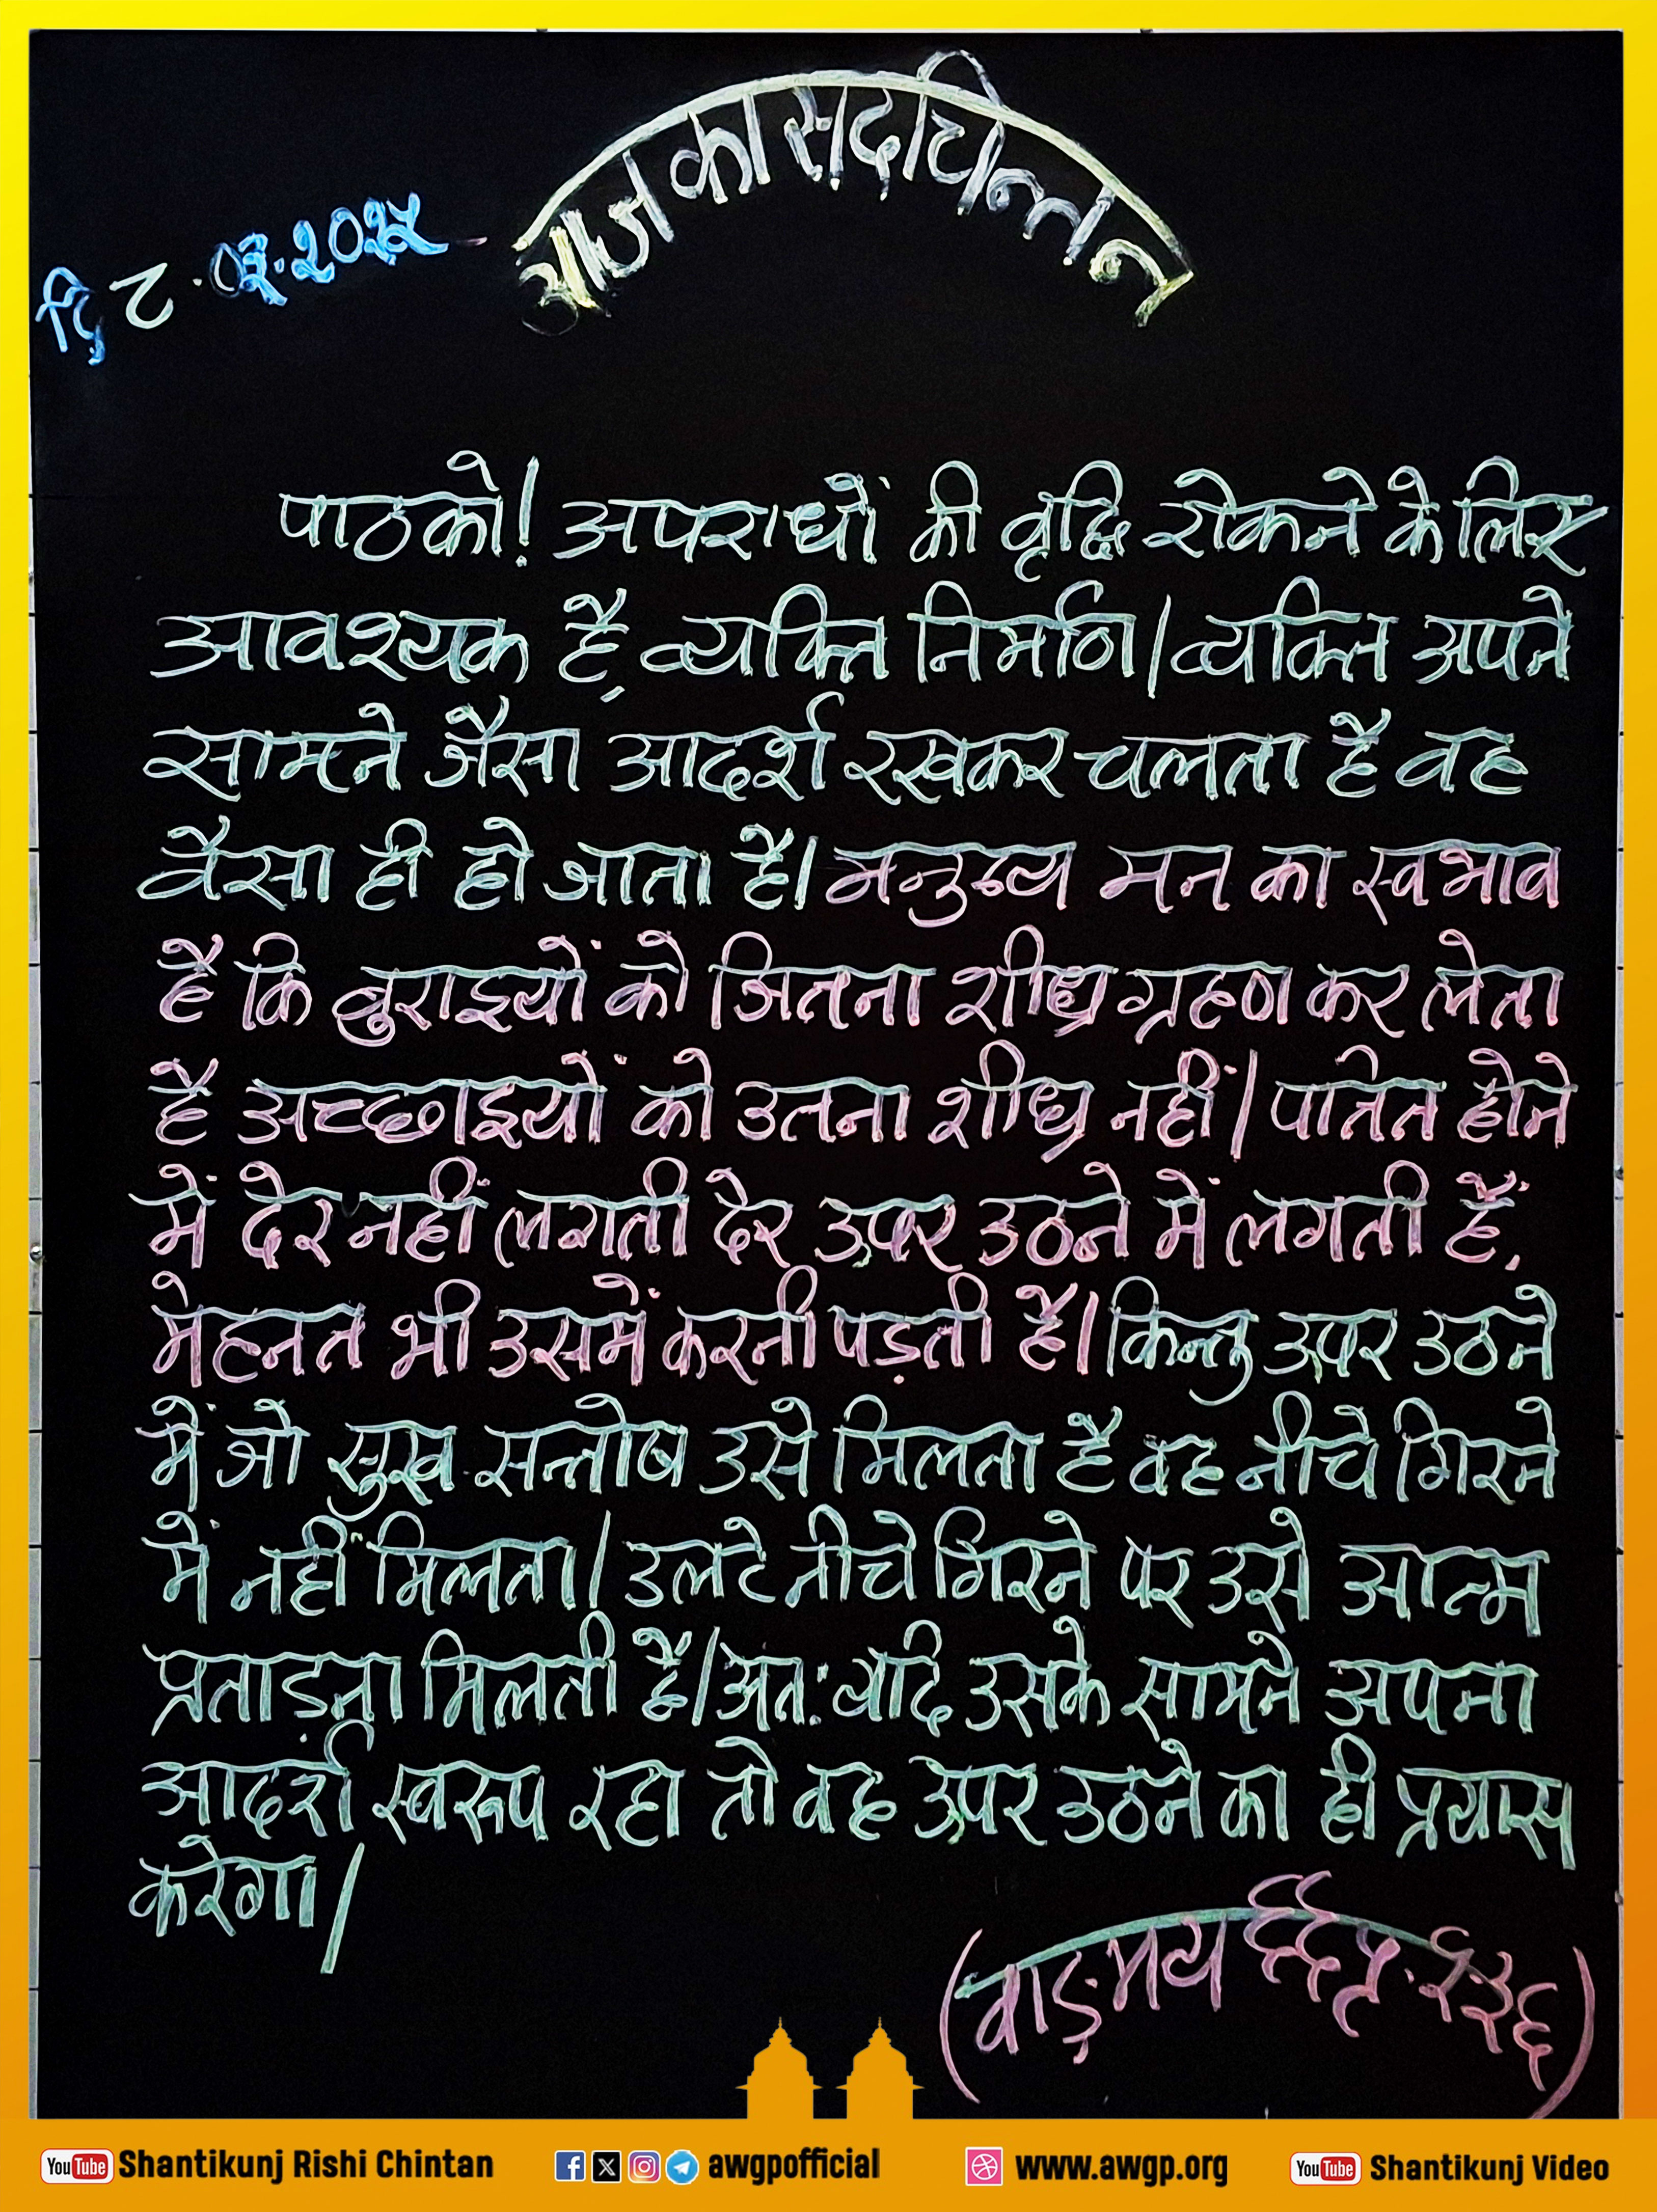 आज का सद्चिन्तन
दि ८.०३.२०२५
पाठको! अपराधों की वृद्धि रोकने के लिए
आवश्यक है, व्यक्ति निर्माण। व्यक्ति अपने
सामने जैसा आदर्श रखकर चलता है वह
वैसा ही हो जाता है। मनुष्य मन का स्वभाव
है कि बुराइयों को जितना शीघ्र ग्रहण कर लेता
है अच्छाइयों को उतना शीघ्र नहीं। पतित होने
में देर नहीं लगती देर ऊपर उठने में लगती है,
मेहनत भी उसमें करनी पड़ती है। किन्तु ऊपर उठने
में जो सुख सन्तोष उसे मिलता है वह नीचे गिरने
में नहीं मिलता। उलटे नीचे गिरने पर उसे आत्म
प्रताड़ना मिलती है। अत: यदि उसके सामने अपना
आदर्श स्वरूप रहा तो वह ऊपर उठने का ही प्रयास
करेगा।
(वाङ्मय ६६ पृ.
YouTube Shantikunj Rishi Chintan awgpofficial www.awgp.org YouTube Shantikunj Video